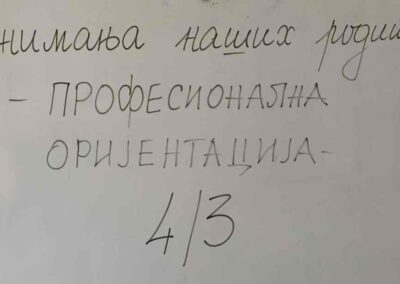 нимања наших роди
- ПРОФЕСИОНАЛНА
ОРИЈЕНТАЦИЈА-
4/3